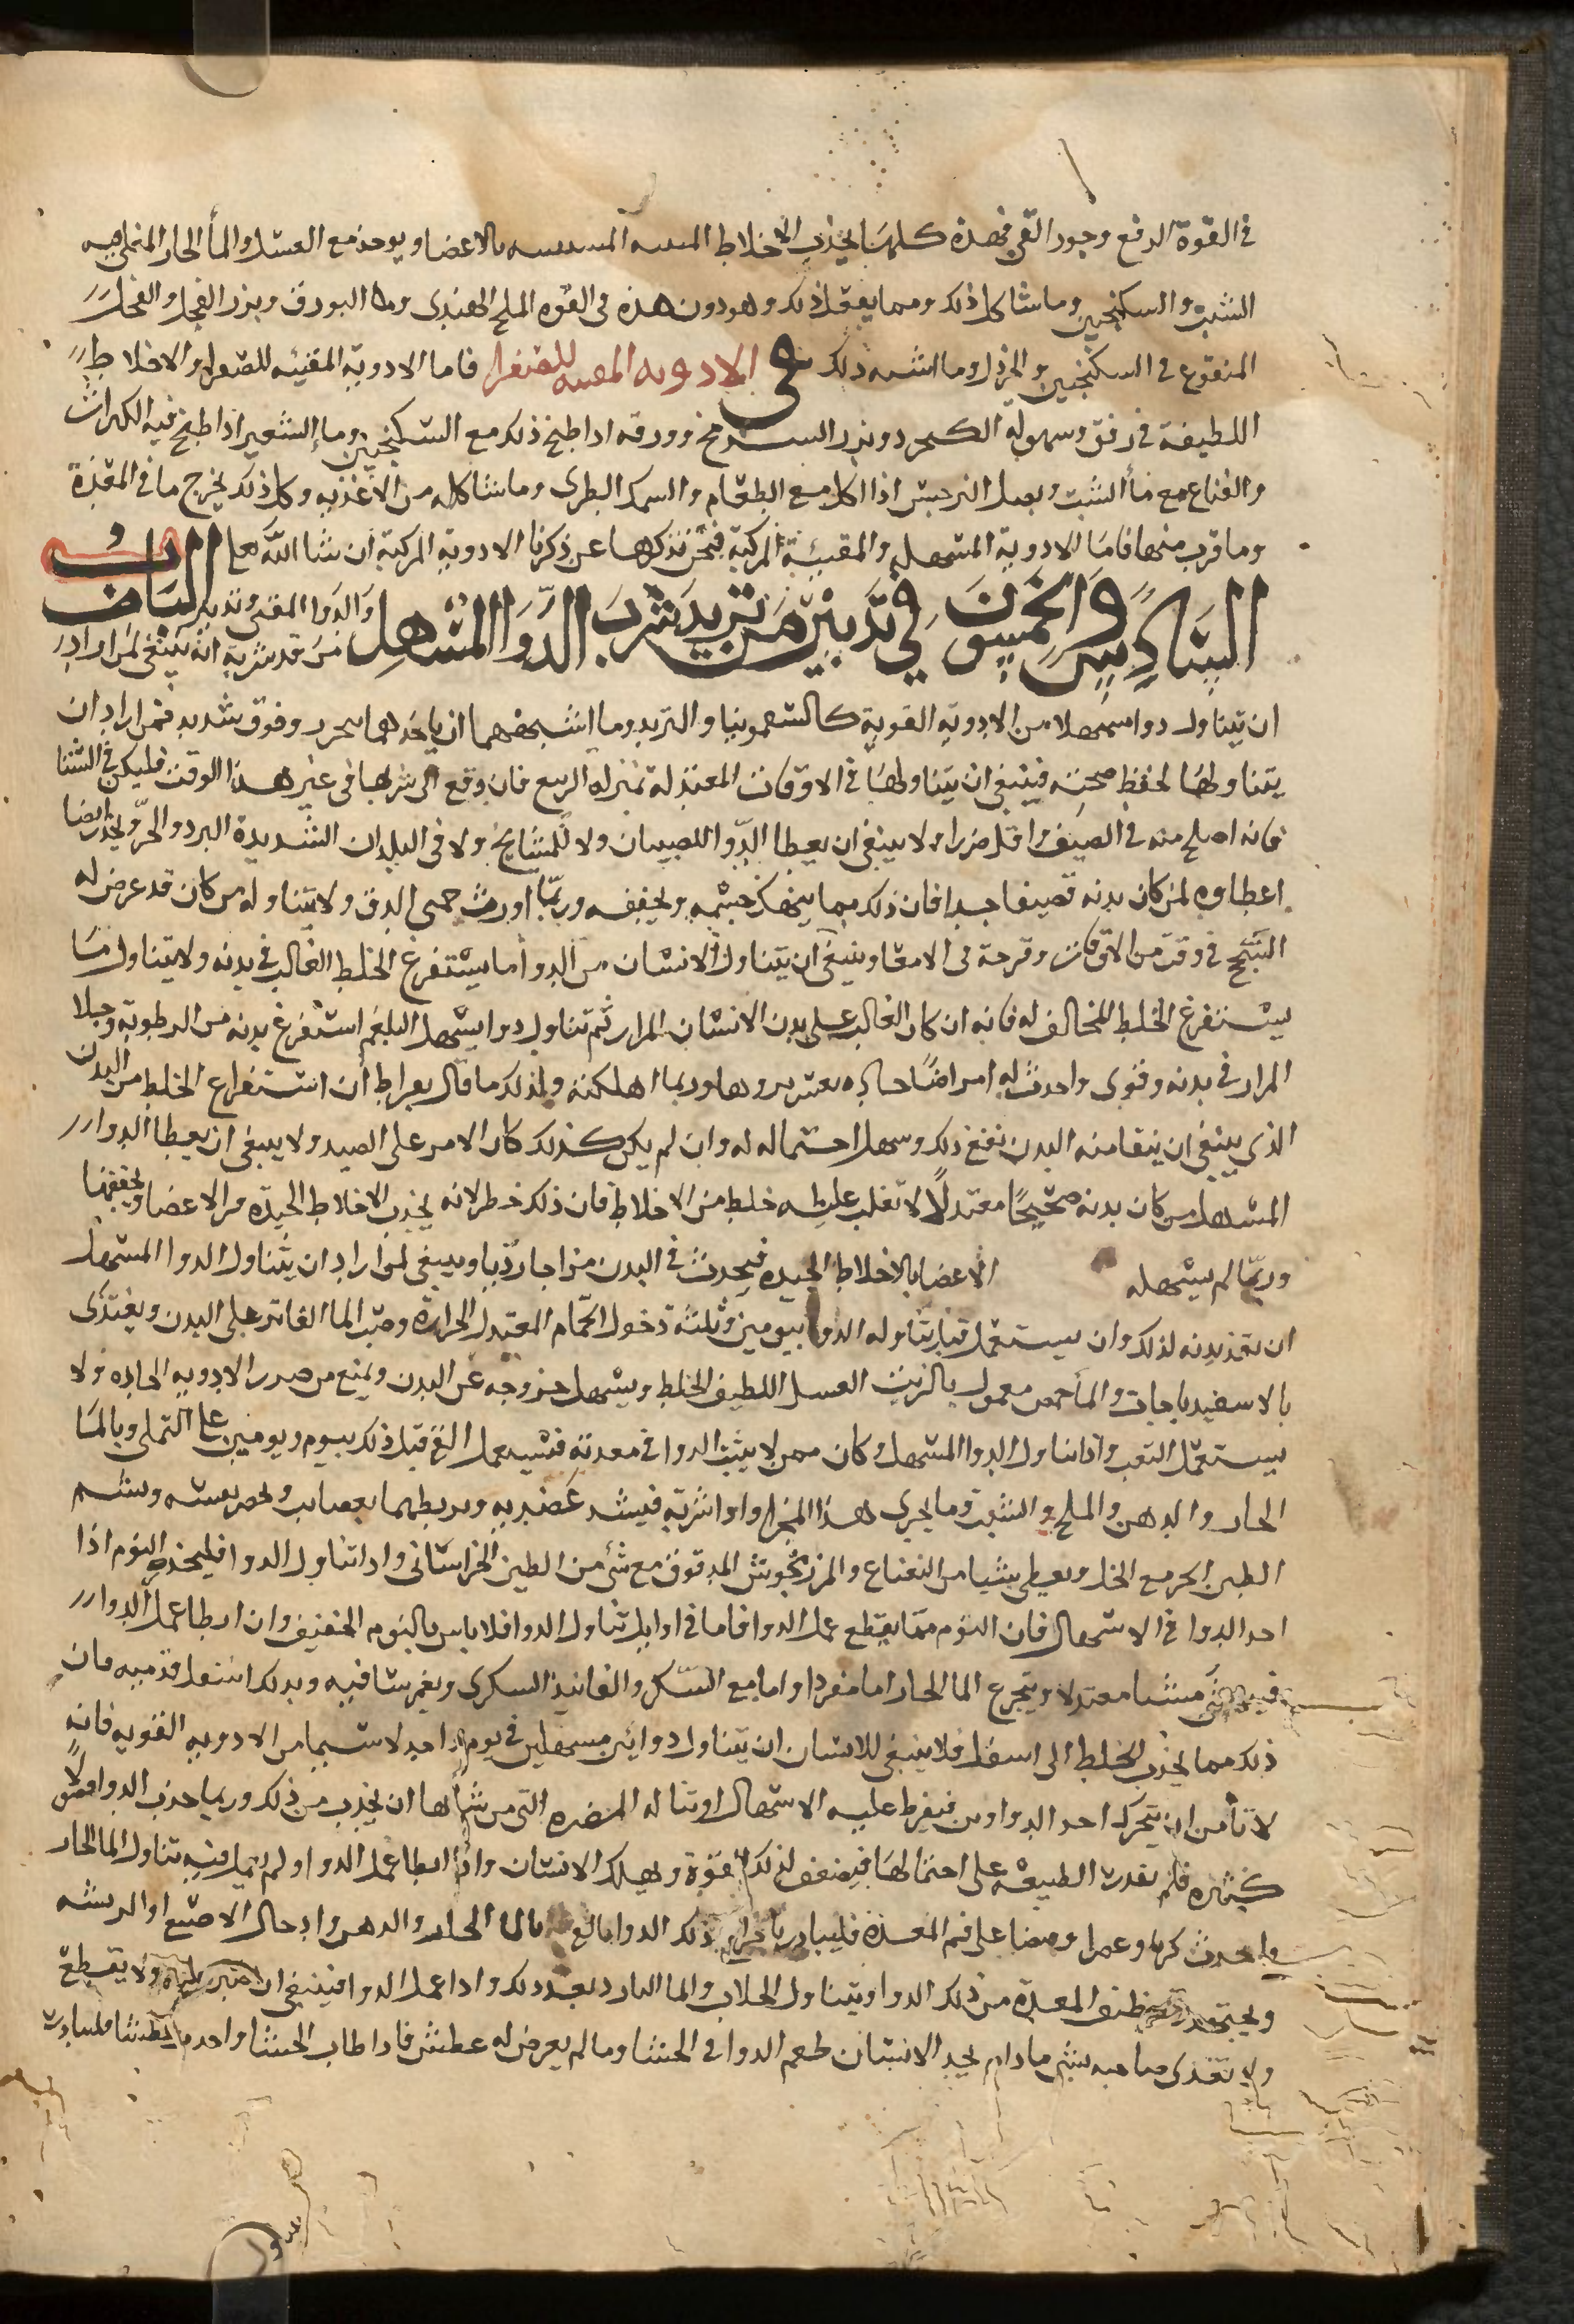 في القوة الرفع وجود القي فهذة كلها يجذب الاخلاط بالاعضا ويوخذ مع العسل والمأ الحار المغلي فيه
الشبت والسكنجبين وما شاكل ذلك ومما يفعل ذلك وهو دون هذه في القوه الملح الهندى وما البورق وبزر الفجل والفجل
المنقوع في السكنجبين والخردل وما اشبه ذلك في الادويه المقيه للصفرا فاما الادوية المقيئه للصفرا والاخلاط
اللطيفة في رفق وسهولة وبزر السرمخ وورقه اذا طبخ ذلك مع السكنجبين وما الشعير اذا طبخ فيه الكراث
والنعناع مع مأ الشبت وبصل النرجس اذا اكل مع الطعام والسمك الطرى وما شاكله من الاغذيه وكل ذلك يخرج ما في المعدة
وما قرب منها فاما الادوية المسهلة والمقيئة المركبة فنحن نذكرها عن ذكرنا الادوية المركبة ان شا الله تعالى الباب
السادس والخمسون في تدبير من يريد شرب الدوا المسهل والدوا المقى وتدبير من قد شربه انه ينبغي لمن اراد
ان يتناول دوا مسهلا من الادوية القوية كالسقمونيا والتربد وما اشبههما ان ياخذهما بحذر وفوق شديد فمن اراد ان
يتناولها لحفظ صحته فينبغي ان يتناولها في الاوقات المعتدلة بمنزلة الربيع فان وقع الى شربها في غير هذا الوقت فليكن في الشتا
فانه اصلح منه في الصيف واقل ضررا ولا ينبغي ان يعطا الدوا للصبيان ولا للمشايخ ولا في البلدان الشديدة البرد والحر وليحذر ايضا
اعطاوه لمن كان بدنه قصيفا جدا فان ذلك مما ينهك جسمه ويجففه وربما اورث حمى الدق ولا يتناوله من كان قد عرض له
السحج في وقت من الاوقات وقرحة في الامعا وينبغي ان يتناول الانسان من الدوا ما يستفرغ الخلط الغالب في بدنه ولا يتناول ما
يستفرغ الخلط المخالف له فانه ان كان الغالب على بدن الانسان المرار ثم تناول دوا يسهل البلغم استفرغ بدنه من الرطوبة وخلا
المرار في بدنه وقوى واحدث له امراضا حاده يعسر بروها وربما اهلكته ولذلك ما قال بقراط أن استفراع الخلط من البدن
الذى ينبغي ان ينقا منه البدن نفع ذلك وسهل احتماله له وان لم يكن كذلك كان الامر على الضد ولا ينبغي ان يعطا الدوا
المسهل من كان بدنه صحيحا معتدلا لا تغلب عليه خلط من الاخلاط فان ذلك خطر لانه يجذب الاخلاط الجيده من الاعضا ويجففها
وربما لم يسهله الاعضا بالاخلاط الجيده فيحدث في البدن مزاجا رديا وينبغي لمن اراد ان يتناول الدوا المسهل
ان يعد بدنه لذلك وان يستعمل قبل تناوله الدوا بيومين وثلثة دخول الحمام المعتدل الحرارة وصب الما الفاتر على البدن ويغتذى
بالاسفيدباجات والمأ حمص معمول بالزيت العسل اللطيف الخلط ويسهل خروجه عن البدن ويمنع من ضرر الادويه الحاده ولا
يستعمل التعب واذا تناول الدوا المسهل وكان ممن لا يثبت الدوا في معدته فليستعمل القي قبل ذلك بيوم ويومين على التملى وبالما
الحار والدهن والملح والشبت وما يجرى هذا المجرا واذا شربه فيشد عضديه ويربطهما بعصايب ويشم
الطين الحر مع الخل ويعطى شيا من النعناع والمرزنجوش المدقوق مع شئ من الطين الخراسانى واذا تناول الدوا فليحذر النوم اذا
اخذ الدوا في الاسهال فان النوم مما يقطع عمل الدوا فاما في اوايل تناول الدوا فلا باس بالنوم الخفيف وان ابطا عمل الدوا
مشيا معتدلا ويتجرع الما الحار اما مفردا واما مع السكر والفانيذ السكرى ويغمر ساقيه ويدلك اسفل قدميه فان
ذلك مما يجذب الخلط الى اسفل فلا ينبغي للانسان ان يتناول دوائين مسهلين في يوم واحد لاسيما من الادويه القويه فانه
لا تأمن ان يتحرك احد الدواوين فيفرط عليه الاسهال او تناله المضره التى من شأنها ان يجذب من ذلك وربما جذب الدوا فضولا
كثيره فلم تقدر الطبيعة على احتمالها فيضعف لذلك القوة ويهلك الانسان واذا ابطا عمل الدوا ولم يعمل فيه تناول الما الحار
واحدث كربا وغما ومضا على فم المعدة فليبادر باخراج ذلك الدوا بالقي بالما الحار والدهن وادخال الاصبع او الريشه
ويجتهد المعدة من ذلك الدوا ويتناول الجلاب والما البارد بعد ذلك واذا عمل الدوا فينبغي ان ولا يقطع
ولا يتغذى صاحبه بشى ما دام يجد الانسان طعم الدوا في الجشا وما لم يعرض له عطش فاذا طاب الجشا واحدث عطشا فليبادر